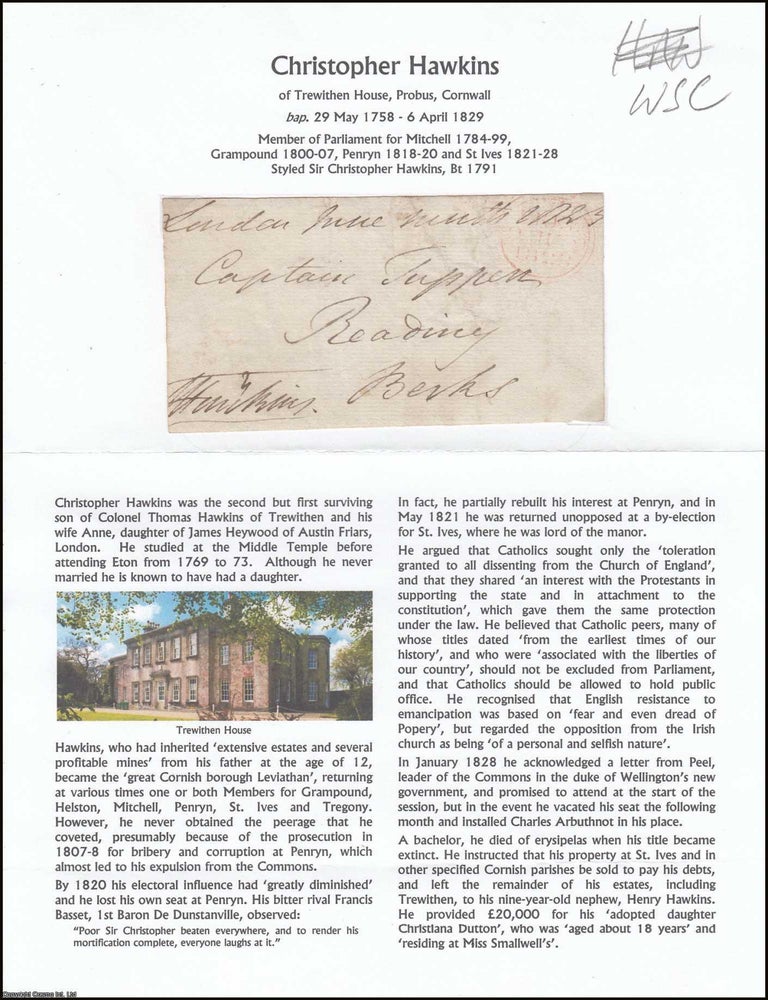 Christopher Hawkins
WSC
of Trewithen House, Probus, Cornwall
bap. 29 May 1758 - 6 April 1829
Member of Parliament for Mitchell 1784-99,
Grampound 1800-07, Penryn 1818-20 and St Ives 1821-28
Styled Sir Christopher Hawkins, Bt 1791
London June ninth
Captain Tuppen
Reading
Berks
Hawkins.
Christopher Hawkins was the second but first surviving
son of Colonel Thomas Hawkins of Trewithen and his
wife Anne, daughter of James Heywood of Austin Friars,
London. He studied at the Middle Temple before
attending Eton from 1769 to 73. Although he never
married he is known to have had a daughter.
Trewithen House
Hawkins, who had inherited ‘extensive estates and several
profitable mines’ from his father at the age of 12,
became the ‘great Cornish borough Leviathan’, returning
at various times one or both Members for Grampound,
Helston, Mitchell, Penryn, St. Ives and Tregony.
However, he never obtained the peerage that he
coveted, presumably because of the prosecution in
1807-8 for bribery and corruption at Penryn, which
almost led to his expulsion from the Commons.
By 1820 his electoral influence had ‘greatly diminished’
and he lost his own seat at Penryn. His bitter rival Francis
Basset, 1st Baron De Dunstanville, observed:
“Poor Sir Christopher beaten everywhere, and to render his
mortification complete, everyone laughs at it.”
In fact, he partially rebuilt his interest at Penryn, and in
May 1821 he was returned unopposed at a by-election
for St. Ives, where he was lord of the manor.
He argued that Catholics sought only the ‘toleration
granted to all dissenting from the Church of England’,
and that they shared ‘an interest with the Protestants in
supporting the state and in attachment to the
constitution’, which gave them the same protection
under the law. He believed that Catholic peers, many of
whose titles dated ‘from the earliest times of our
history’, and who were ‘associated with the liberties of
our country’, should not be excluded from Parliament,
and that Catholics should be allowed to hold public
office. He recognised that English resistance to
emancipation was based on ‘fear and even dread of
Popery’, but regarded the opposition from the Irish
church as being ‘of a personal and selfish nature’.
In January 1828 he acknowledged a letter from Peel,
leader of the Commons in the duke of Wellington’s new
government, and promised to attend at the start of the
session, but in the event he vacated his seat the following
month and installed Charles Arbuthnot in his place.
A bachelor, he died of erysipelas when his title became
extinct. He instructed that his property at St. Ives and in
other specified Cornish parishes be sold to pay his debts,
and left the remainder of his estates, including
Trewithen, to his nine-year-old nephew, Henry Hawkins.
He provided £20,000 for his ‘adopted daughter
Christiana Dutton’, who was ‘aged about 18 years’ and
‘residing at Miss Smallwell’s’.